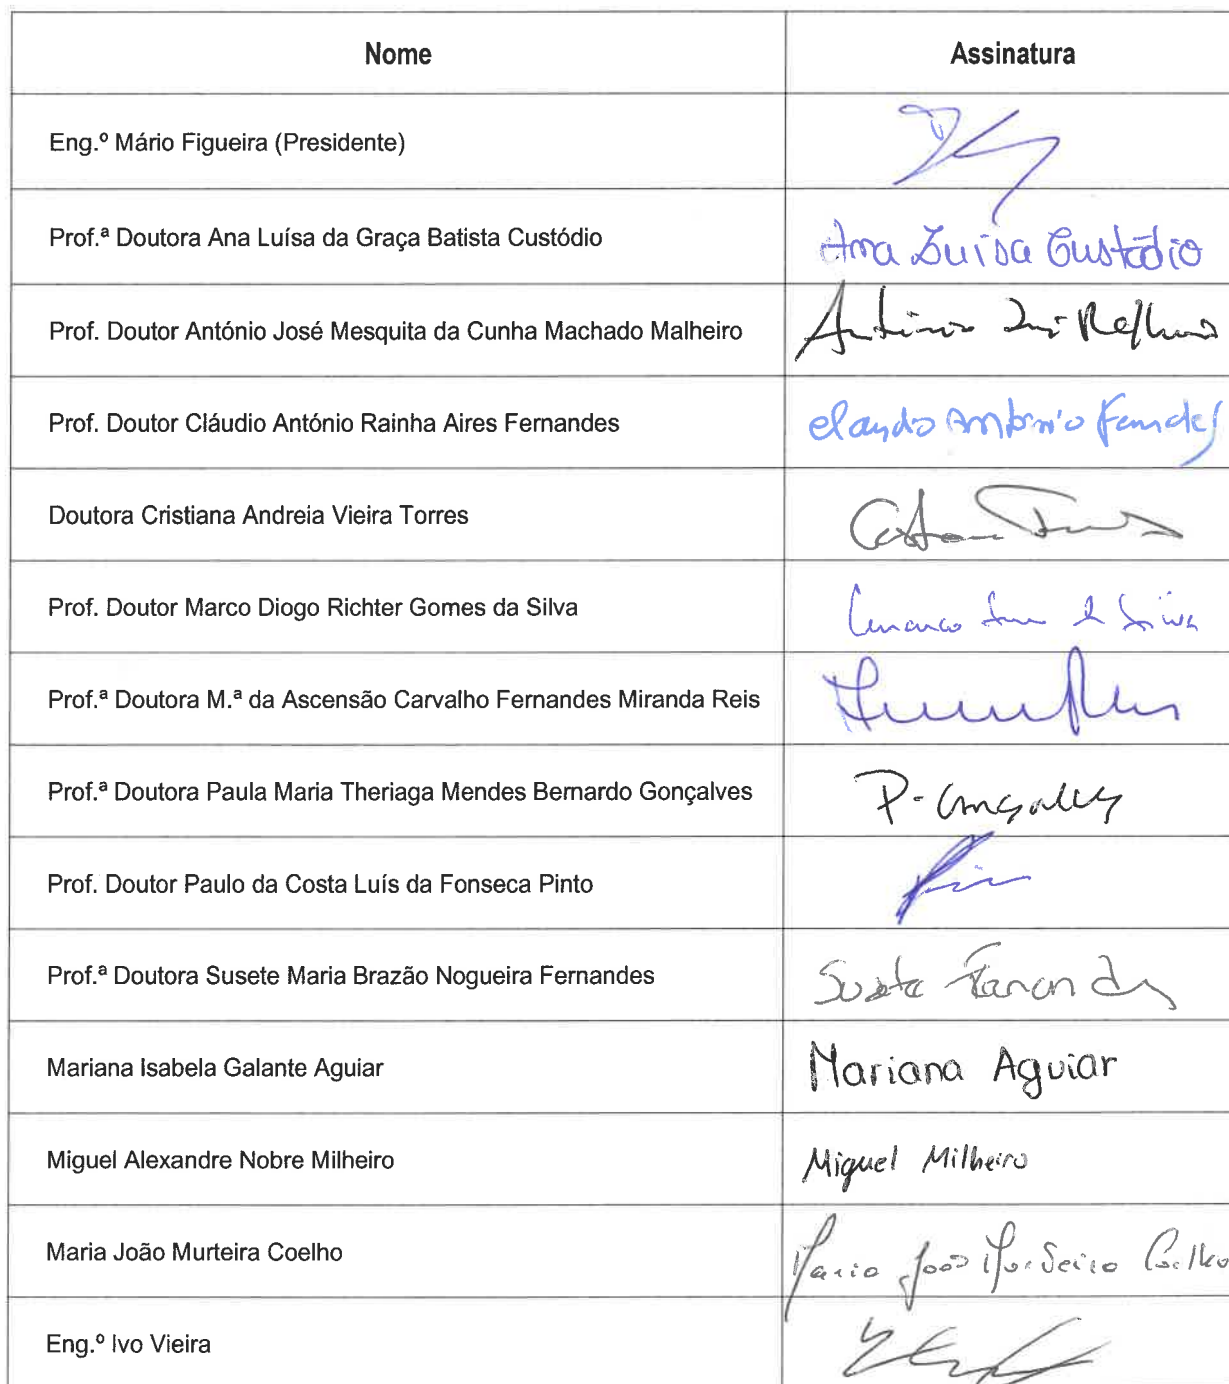 Nome Assinatura
Eng.º Mário Figueira (Presidente)
Prof.ª Doutora Ana Luísa da Graça Batista Custódio Ana Luísa Custódio
Prof. Doutor António José Mesquita da Cunha Machado Malheiro António José Malheiro
Prof. Doutor Cláudio António Rainha Aires Fernandes Claudio António Fernandes
Doutora Cristiana Andreia Vieira Torres
Prof. Doutor Marco Diogo Richter Gomes da Silva
Prof.ª Doutora M.ª da Ascensão Carvalho Fernandes Miranda Reis
Prof.ª Doutora Paula Maria Theriaga Mendes Bernardo Gonçalves P. Gonçalves
Prof. Doutor Paulo da Costa Luís da Fonseca Pinto
Prof.ª Doutora Susete Maria Brazão Nogueira Fernandes Susete Fernandes
Mariana Isabela Galante Aguiar Mariana Aguiar
Miguel Alexandre Nobre Milheiro Miguel Milheiro
Maria João Murteira Coelho Maria João Murteira Coelho
Eng.º Ivo Vieira